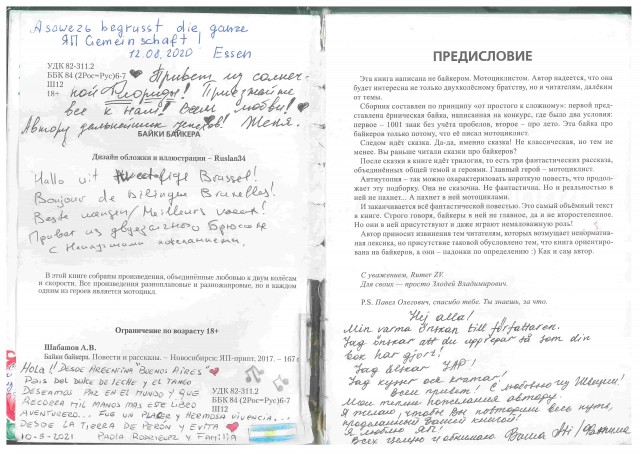 Asowezь begrusst die ganze
ЯП Gemeinschaft!
12.08.2020 Essen
УДК 82-311.2
ББК 84 (2Рос=Рус)6-7
Ш12
18+
Привет из солнеч-
ной Флориды! Приезжайте
все к нам! Всем любви!
Автору дальнейших успехов! Женя.
БАЙКИ БАЙКЕРА
Дизайн обложки и иллюстрации – Ruslan34
Hallo uit Brussel!
Bonjour de bilingue Bruxelles!
Beste wensen/Meilleurs voeux!
Привет из двуязычного Брюсселя
с наилучшими пожеланиями.
В этой книге собраны произведения, объединённые любовью к двум колёсам
и скорости. Все произведения разноплановые и разножанровые, но в каждом
одним из героев является мотоцикл.
Ограничение по возрасту 18+
Шабашов А.В.
Байки байкера. Повести и рассказы. – Новосибирск: ЯП-принт, 2017. – 167 с
Hola!! Desde Argentina Buenos Aires
Pais del dulce de leche y el tango
Deseamos paz en el mundo y que
recorra mil manos mas este libro
aventurero... Fue un placer y hermosa vivencia...
Desde la tierra de Perón y Evita
10-5-2021 Paola Rodriguez y Familia
УДК 82-311.2
ББК 84 (2Рос=Рус)6-7
Ш12
ПРЕДИСЛОВИЕ
Эта книга написана не байкером. Мотоциклистом. Автор надеется, что она
будет интересна не только двухколёсному братству, но и читателям, далёким
от темы.
Сборник составлен по принципу «от простого к сложному»: первой пред-
ставлена ёрническая байка, написанная на конкурс, где было два условия:
первое – 1001 знак без учёта пробелов, второе – про лето. Эта байка про
байкеров только потому, что её писал мотоциклист.
Следом идёт сказка. Да-да, именно сказка! Не классическая, но тем не
менее. Вы раньше читали сказки про байкеров?
После сказки идёт трилогия, то есть три фантастических рассказа,
объединённых общей темой и героями. Главный герой – мотоциклист.
Антиутопия – так можно охарактеризовать короткую повесть, что продол-
жает эту подборку. Она не сказочна. Не фантастична. Но и реальностью
в ней не пахнет... А пахнет в ней мотоциклами.
И заканчивается всё фантастической повестью. Это самый объёмный текст
в книге. Строго говоря, байкеры в ней не главное, да и не второстепенное.
Но они в ней присутствуют и даже играют немаловажную роль!
Автор приносит извинения тем читателям, которых возмущает ненорматив-
ная лексика, но присутствие таковой обусловлено тем, что книга ориентиро-
вана на байкеров, а они – падонки по определению :) Как и сам автор.
С уважением, Rumer ZV.
Для своих — просто Злодей Владимирович.
P.S. Павел Олегович, спасибо тебе. Ты знаешь, за что.
Hej alla!
Min varma önskan till författaren.
Jag önskar att du upprepar så som din
bok har gjort!
Jag älskar JAP!
Jag kysser och kramar!
Всем привет! С любовью из Швеции!
Мои теплые пожелания автору.
Я желаю, чтобы Вы повторили весь путь,
проделанный Вашей книгой!
Я люблю ЯП!
Всех целую и обнимаю. Ваша